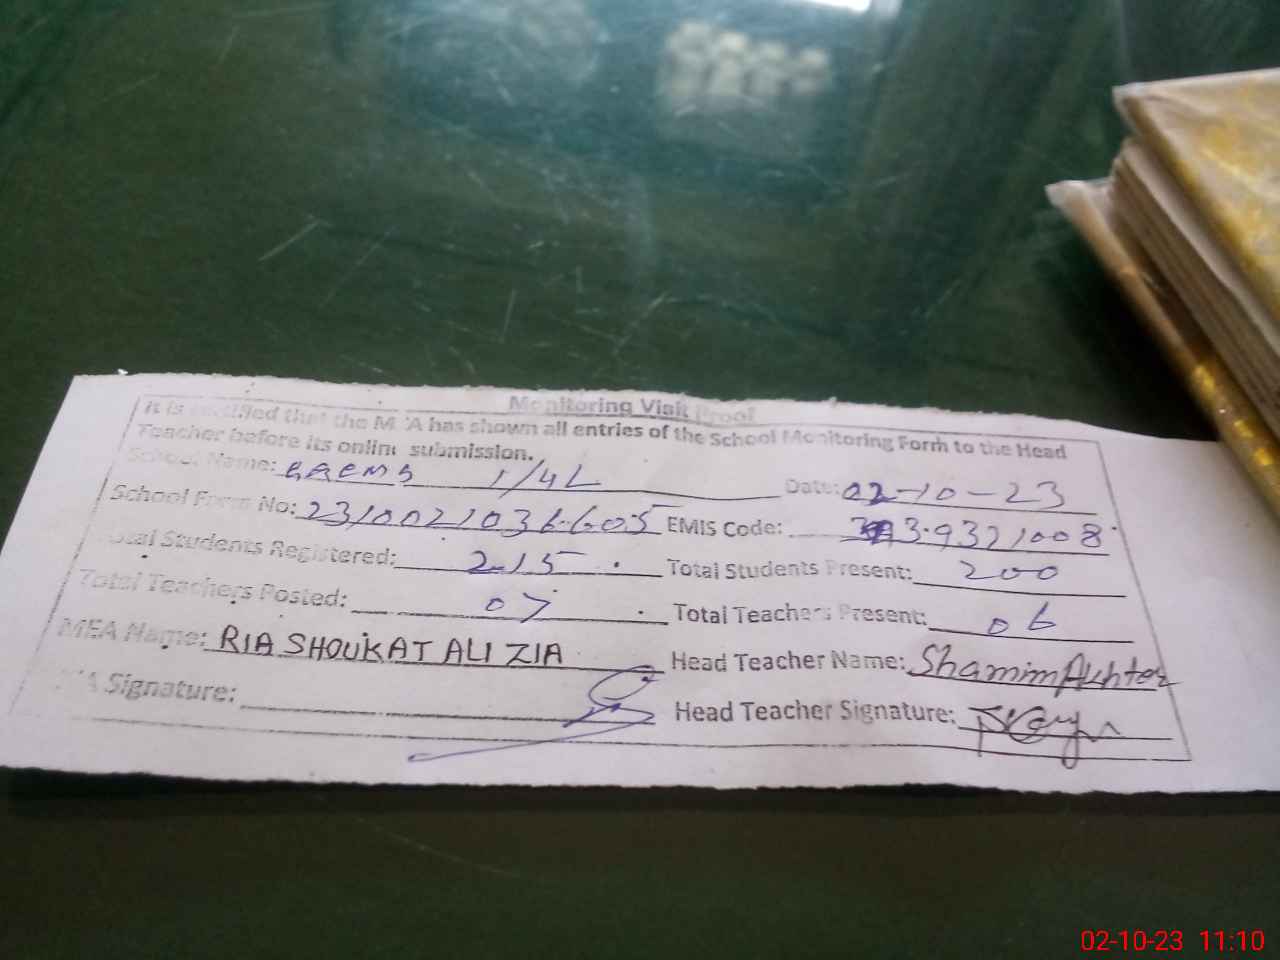 Monitoring Visit Proof
It is certified that the MEA has shown all entries of the School Monitoring Form to the Head
Teacher before its online submission.
School Name: GGEMS 1/4L Date: 02-10-23
School Form No: 2310021036605 EMIS Code: 39321008
Total Students Registered: 215 Total Students Present: 200
Total Teachers Posted: 07 Total Teachers Present: 06
MEA Name: RIA SHOUKAT ALI ZIA Head Teacher Name: Shamim Akhter
MEA Signature: Head Teacher Signature:
02-10-23 11:10